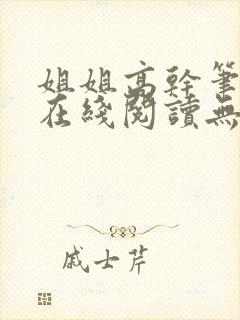 姐姐高幹筆
在綫閱讀無
戚士芹